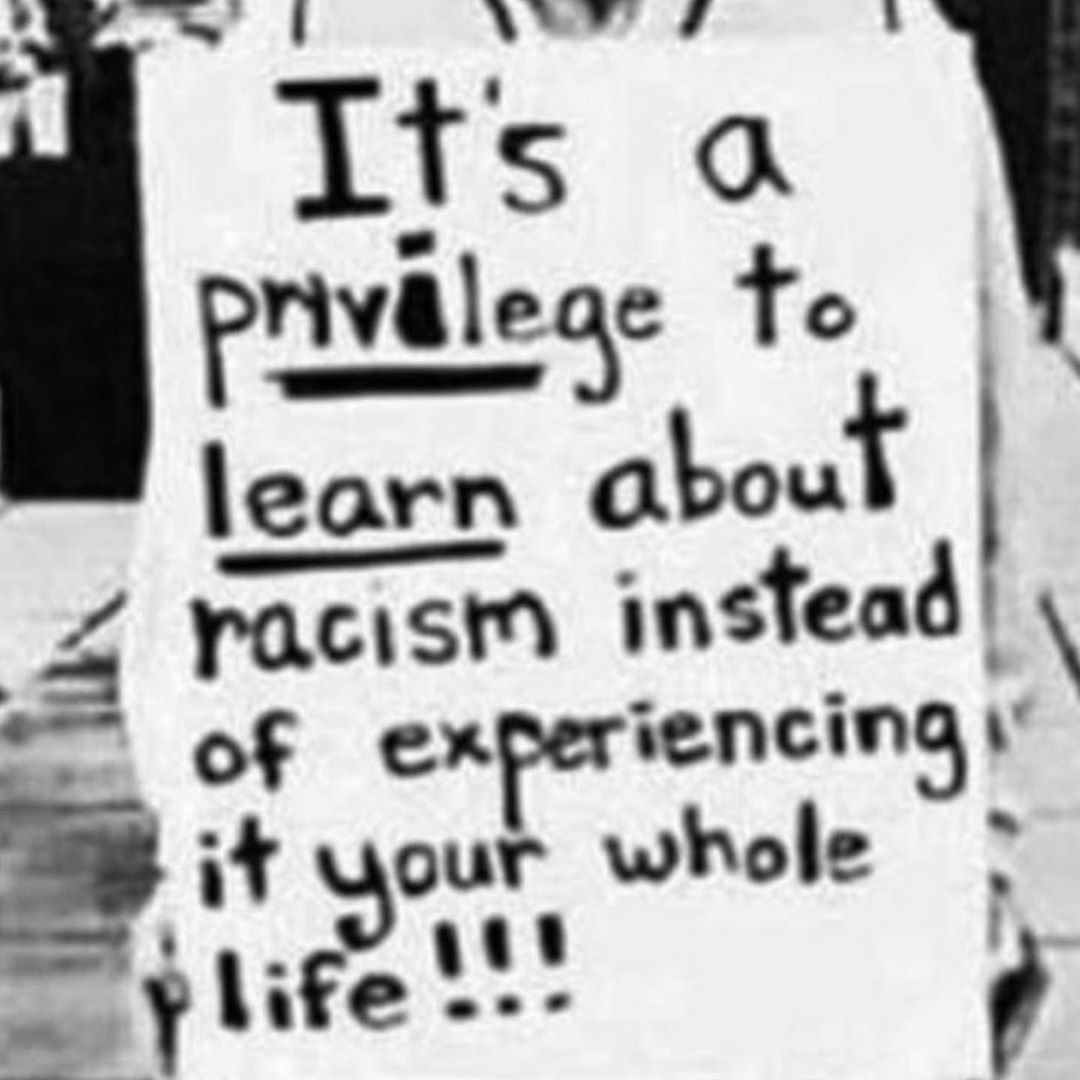 It's a
privilege to
learn about
racism instead
of experiencing
it your whole
life!!!